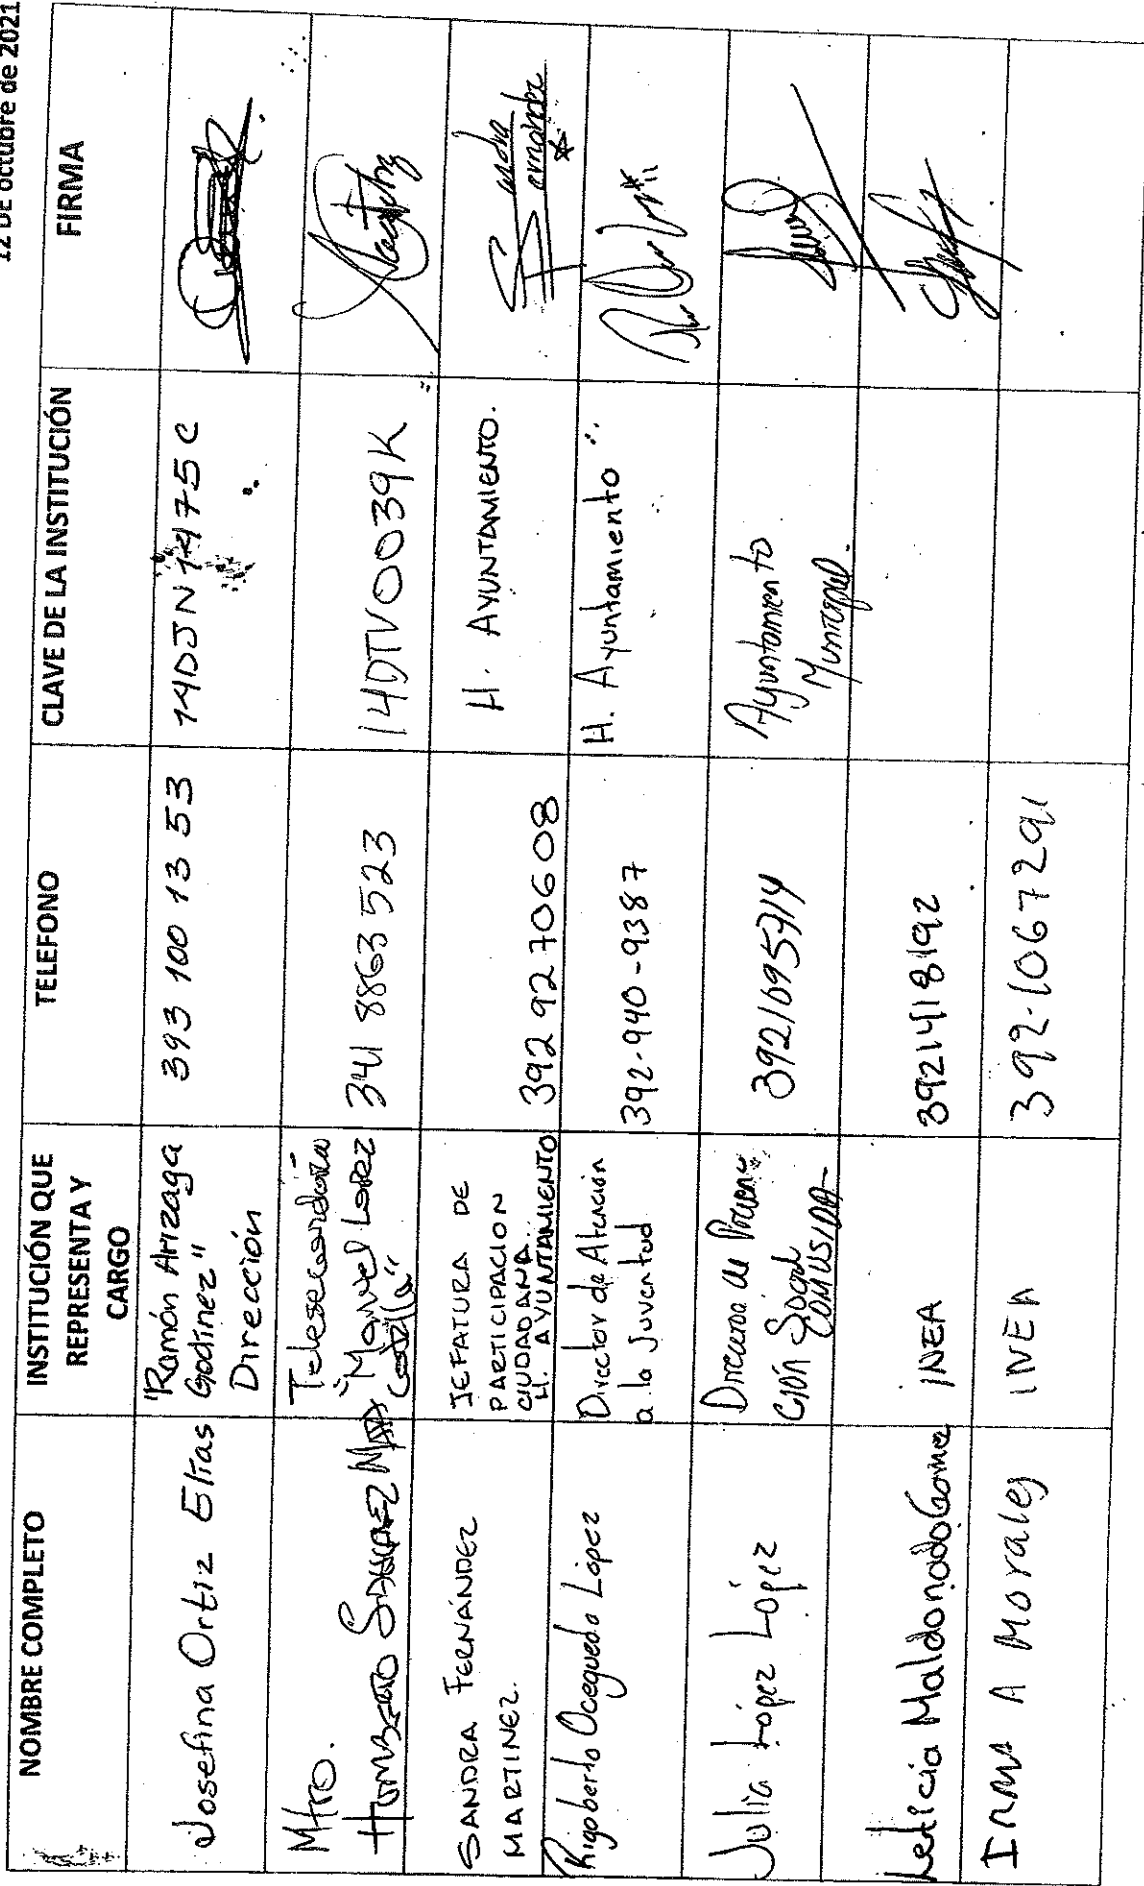 12 DE octubre de 2021
NOMBRE COMPLETO
INSTITUCIÓN QUE
REPRESENTA Y
CARGO
TELEFONO
CLAVE DE LA INSTITUCIÓN
FIRMA
Josefina Ortiz Elías
"Ramón Arizaga
Godínez"
Dirección
393 100 13 53
14DJN1475C
Mtro.
Humberto Sánchez
Telesecundaria
"Manuel López
Cotilla"
341 8863 523
14DTV0039K
SANDRA FERNÁNDEZ
MARTINEZ.
JEFATURA DE
PARTICIPACION
CIUDADANA.
H. AYUNTAMIENTO
392 9270608
H. AYUNTAMIENTO.
Sandra
Fernández
Rigoberto Ocegueda López
Director de Atención
a la Juventud
392-940-9387
H. Ayuntamiento
Julia López López
Directora de Preven
ción Social
COMUSIDA
3921095714
Ayuntamiento
Municipal.
Leticia Maldonado Gomez
INEA
3921418192
Irma A Morales
INEA
392-1067291